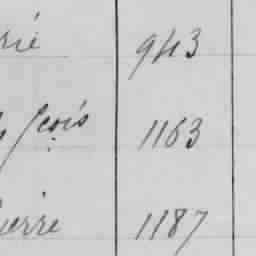 rié 943
s fcois 1163
ierre 1187